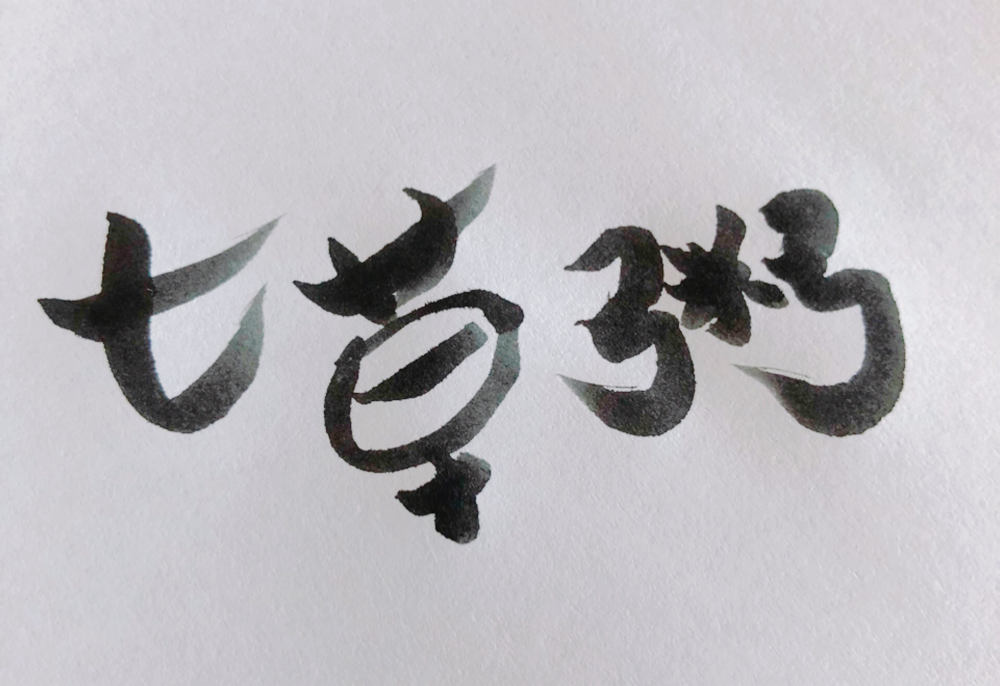 七草粥